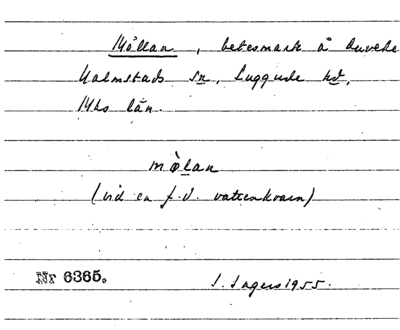 Möllan, betesmark å Duveke
Halmstads sn, Luggude hd,
Mhs län.
mølan
(vid en f.d. vattenkvarn)
Nr 6365. I. Ingers 1955.